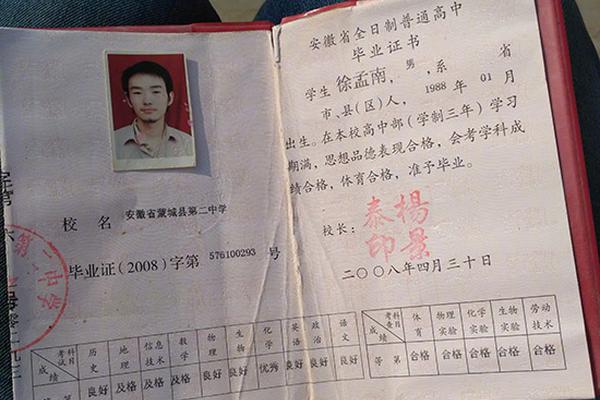 校 名 安徽省蒙城县第二中学
毕业证(2008)字第 576100293 号
第二中学
考试科目 历史 地理 信息技术 数学 物理 生物 化学 英语 政治 语文
成绩 等第 良好 及格 及格 及格 良好 良好 优秀 良好 良好 良好
安徽省全日制普通高中
毕业证书
学生 徐孟南,男,系 省
市、县(区)人, 1988 年 01 月
出生。在本校高中部(学制三年)学习
期满,思想品德表现合格,会考学科成
绩合格,体育合格,准予毕业。
校长: 杨景泰印
二〇〇八年四月三十日
考查科目 体育 物理实验 化学实验 生物实验 劳动技术
成绩 等第 合格 合格 合格 合格 合格